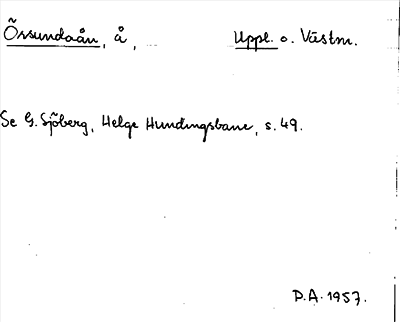 Örsundaån, å, Uppl. o. Västm.
Se G. Sjöberg, Helge Hundingsbane, s. 49.
P.A. 1957.